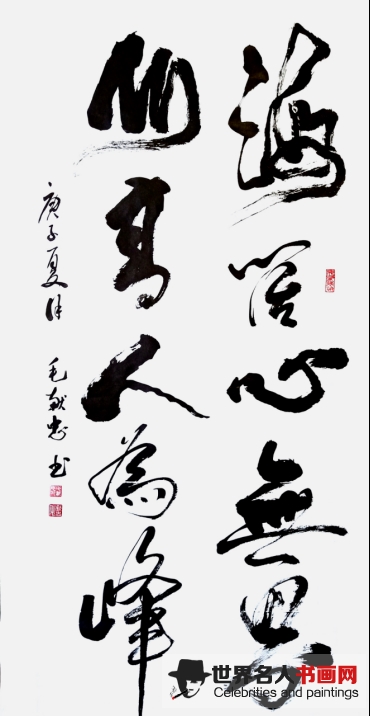 海闊心無界
山高人為峰
庚子夏 毛献忠书
世界名人书画网
Celebrities and paintings